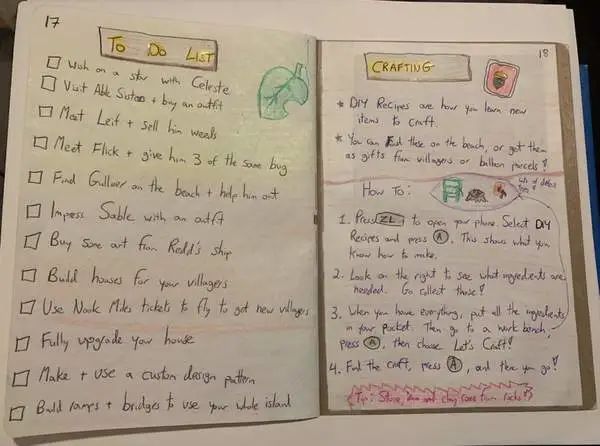 17
To Do List
Wish on a star with Celeste
Visit Able Sisters + buy an outfit
Meet Leif + sell him weeds
Meet Flick + give him 3 of the same bug
Find Gulliver on the beach + help him out
Impress Sable with an outfit
Buy some art from Redd's ship
Build houses for your villagers
Use Nook Miles tickets to fly to get new villagers
Fully upgrade your house
Make + use a custom design pattern
Build ramps + bridges to use your whole island
18
CRAFTING
* DIY Recipes are how you learn new
items to craft.
* You can find these on the beach, or get them
as gifts from villagers or balloon parcels!
How To:
lots of different
types!
1. Press ZL to open your phone. Select DIY
Recipes and press A. This shows what you
know how to make.
2. Look on the right to see what ingredients are
needed. Go collect those!
3. When you have everything, put all the ingredients
in your pocket. Then go to a work bench,
press A, then choose Let's Craft!
4. Find the craft, press A, and there you go!
(Tip: Stone, iron and clay come from rocks!)